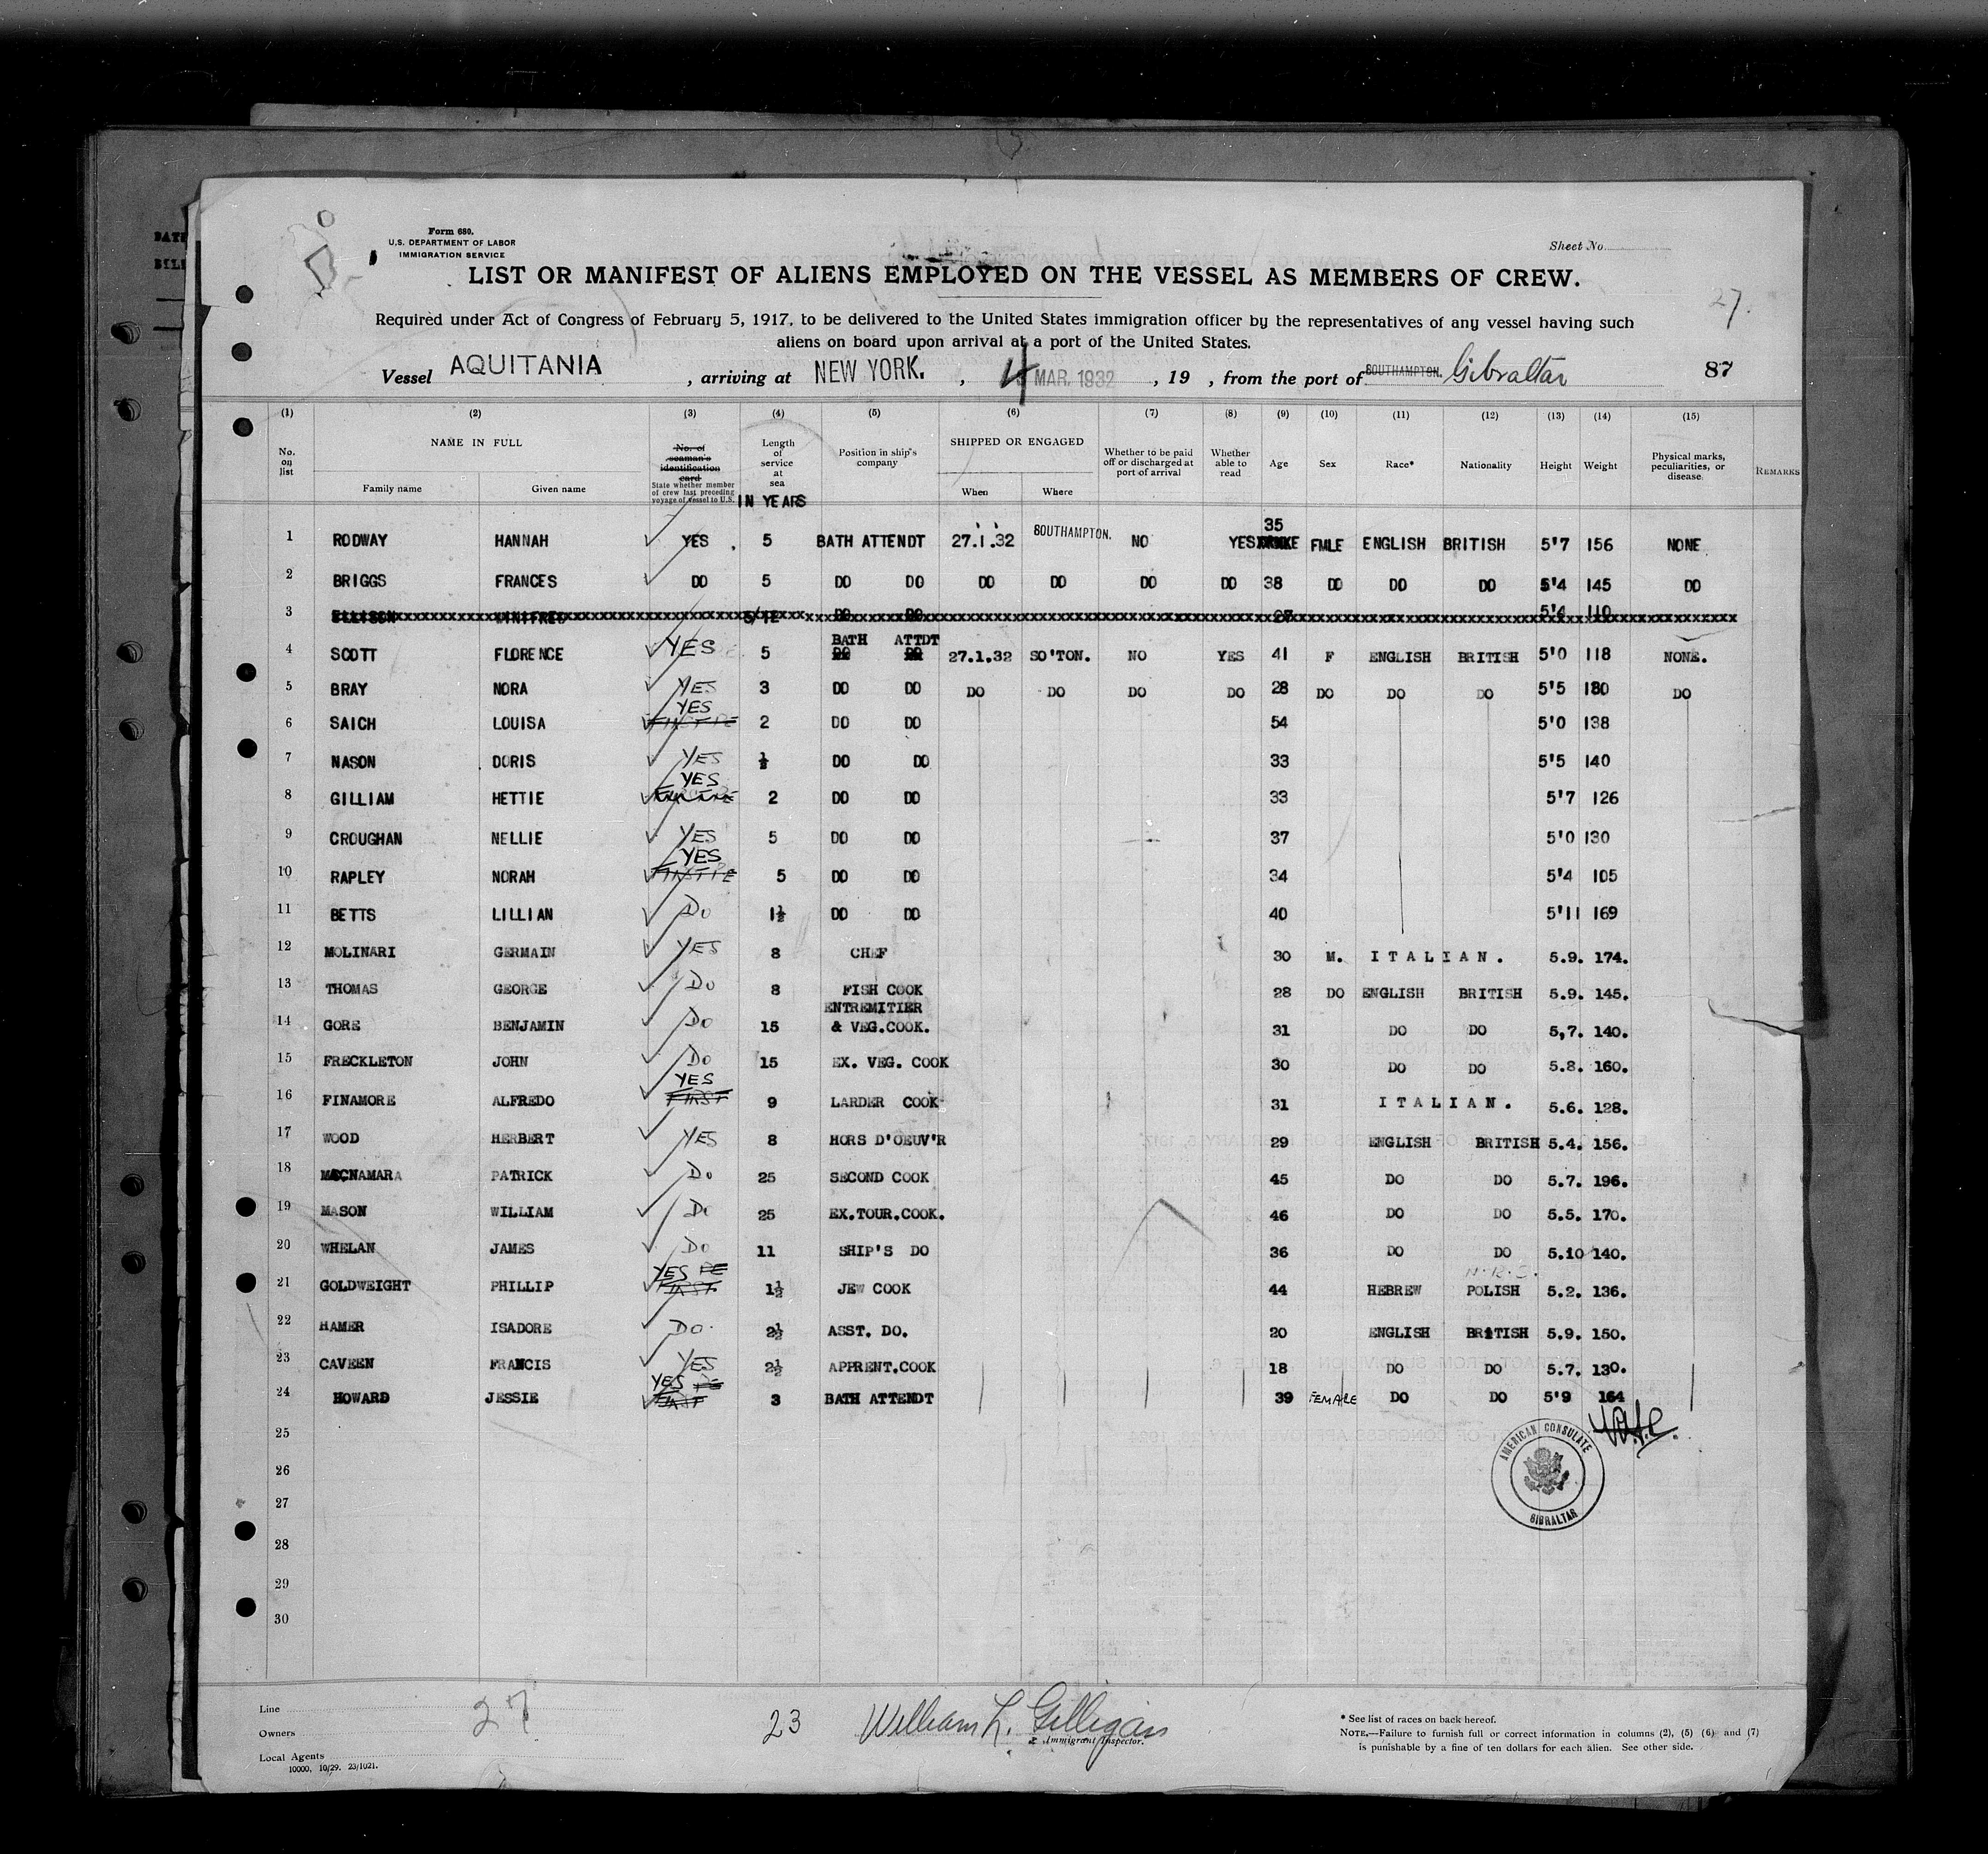 BATH
BILL
Form 680.
U.S. DEPARTMENT OF LABOR
IMMIGRATION SERVICE
Sheet No.
LIST OR MANIFEST OF ALIENS EMPLOYED ON THE VESSEL AS MEMBERS OF CREW.
27.
Required under Act of Congress of February 5, 1917, to be delivered to the United States immigration officer by the representatives of any vessel having such
aliens on board upon arrival at a port of the United States.
Vessel AQUITANIA , arriving at NEW YORK. , 4 MAR. 1932 , 19 , from the port of SOUTHAMPTON. Gibraltar 87
(1) (2) (3) (4) (5) (6) (7) (8) (9) (10) (11) (12) (13) (14) (15)
No. on list NAME IN FULL Family name Given name No. of seaman's identification card State whether member of crew last preceding voyage of vessel to U.S. Length of service at sea IN YEARS Position in ship's company SHIPPED OR ENGAGED When Where Whether to be paid off or discharged at port of arrival Whether able to read Age Sex Race* Nationality Height Weight Physical marks, peculiarities, or disease REMARKS
1 RODWAY HANNAH YES . 5 BATH ATTENDT 27.1.32 SOUTHAMPTON. NO YES 35 FMLE ENGLISH BRITISH 5'7 156 NONE
2 BRIGGS FRANCES DO 5 DO DO DO DO DO DO 38 DO DO DO 5'4 145 DO
3 ELLISON WINIFRED 5/12 DO DO 27 5'4 110
4 SCOTT FLORENCE YES 5 BATH ATTDT DO DO 27.1.32 SO'TON. NO YES 41 F ENGLISH BRITISH 5'0 118 NONE.
5 BRAY NORA YES 3 DO DO DO DO DO DO 28 DO DO DO 5'5 130 DO
6 SAICH LOUISA YES 2 DO DO 54 5'0 138
7 NASON DORIS YES ½ DO DO 33 5'5 140
8 GILLIAM HETTIE YES 2 DO DO 33 5'7 126
9 CROUGHAN NELLIE YES 5 DO DO 37 5'0 130
10 RAPLEY NORAH YES 5 DO DO 34 5'4 105
11 BETTS LILLIAN DO 1½ DO DO 40 5'11 169
12 MOLINARI GERMAIN YES 8 CHEF 30 M. ITALIAN. 5.9. 174.
13 THOMAS GEORGE DO 8 FISH COOK 28 DO ENGLISH BRITISH 5.9. 145.
14 GORE BENJAMIN DO 15 ENTREMITIER & VEG.COOK. 31 DO DO 5,7. 140.
15 FRECKLETON JOHN DO 15 EX. VEG. COOK 30 DO DO 5.8. 160.
16 FINAMORE ALFREDO YES FIRST 9 LARDER COOK 31 ITALIAN. 5.6. 128.
17 WOOD HERBERT YES 8 HORS D'OEUV'R 29 ENGLISH BRITISH 5.4. 156.
18 MACNAMARA PATRICK DO 25 SECOND COOK 45 DO DO 5.7. 196.
19 MASON WILLIAM DO 25 EX.TOUR.COOK. 46 DO DO 5.5. 170.
20 WHELAN JAMES DO 11 SHIP'S DO 36 DO DO 5.10 140.
21 GOLDWEIGHT PHILLIP YES FIRST 1½ JEW COOK 44 HEBREW N.R.C. POLISH 5.2. 136.
22 HAMER ISADORE DO. 2½ ASST. DO. 20 ENGLISH BRITISH 5.9. 150.
23 CAVEEN FRANCIS YES 2½ APPRENT.COOK 18 DO DO 5.7. 130.
24 HOWARD JESSIE YES FIRST 3 BATH ATTENDT 39 FEMALE DO DO 5'9 164
25
26
27
28
29
30
AMERICAN CONSULATE
GIBRALTAR
Line
Owners
Local Agents
10000, 10/29. 23/1021.
27
23 William L. Gilligan
Immigrant Inspector.
* See list of races on back hereof.
NOTE.—Failure to furnish full or correct information in columns (2), (5) (6) and (7)
is punishable by a fine of ten dollars for each alien. See other side.